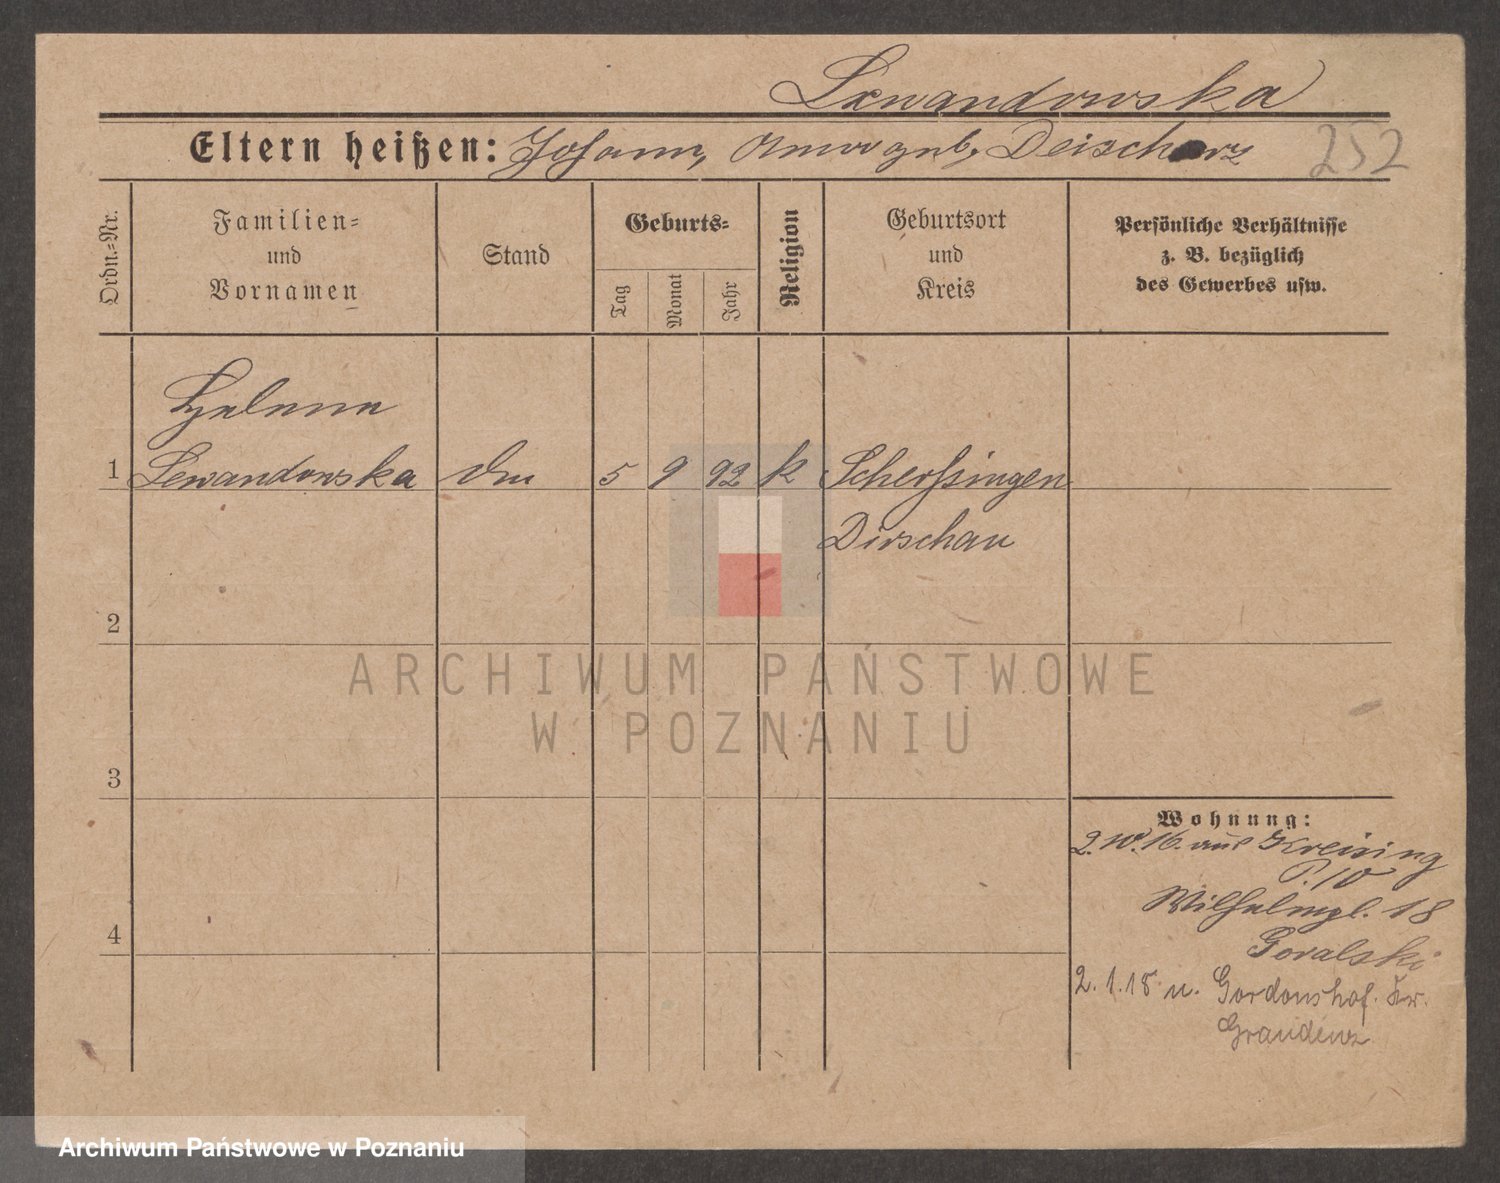 Lewandowska
Eltern heißen: Johann, Anna geb. Deischerz
252
Ordn.=Nr.
Familien=
und
Vornamen
Stand
Geburts=
Tag
Monat
Jahr
Religion
Geburtsort
und
Kreis
Persönliche Verhältnisse
z. B. bezüglich
des Gewerbes usw.
Helene
1 Lewandowska 5 9 92 k Scherpingen
Dirschau
2
3
4
Wohnung:
2.10.16. aus Kreising
P. 10
Wilhelmpl. 18
Goralski
2.1.18 n. Gordonshof. Kr.
Graudenz
ARCHIWUM PAŃSTWOWE
W POZNANIU
Archiwum Państwowe w Poznaniu